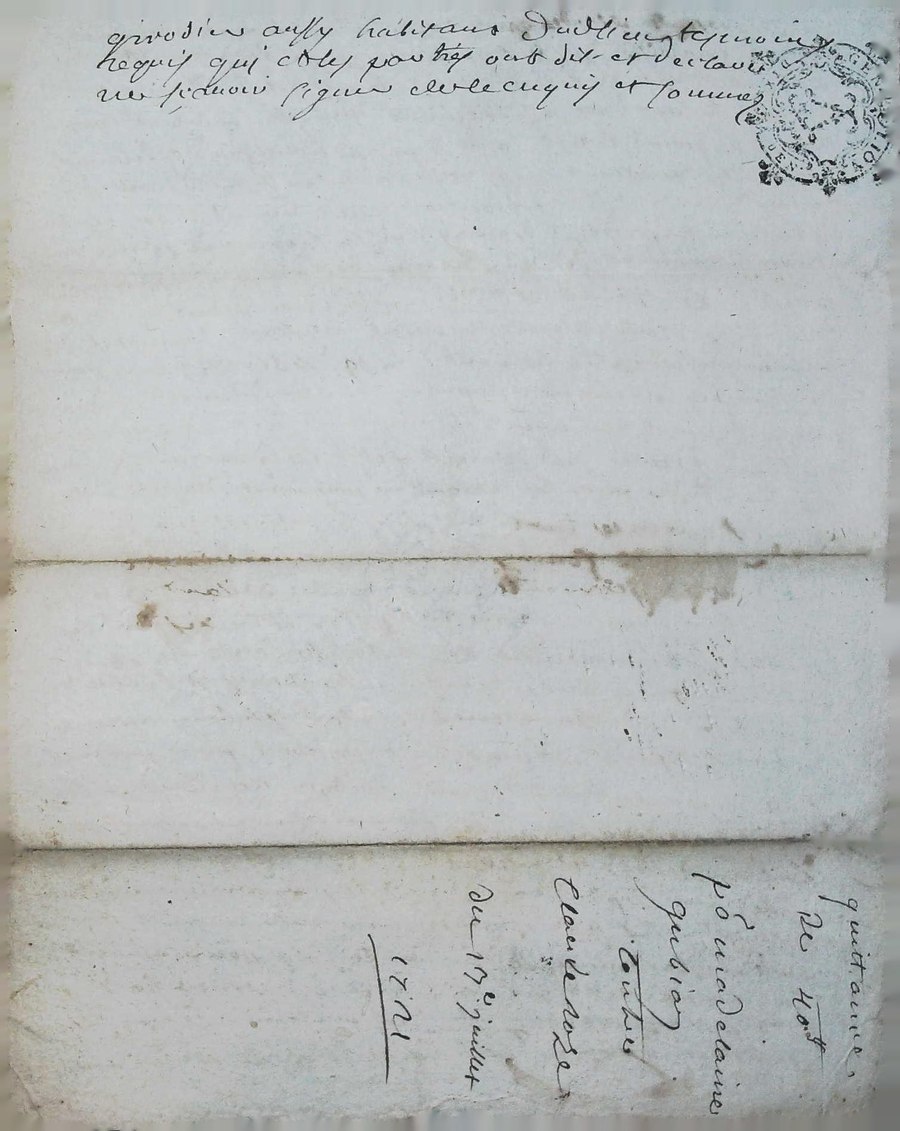 girodier aussy habitans dudlieu tesmoins
requis qui et les parties ont dit et declaré
ne scavoir signer de ce enquis et sommez
GEN
quittance
de 40ʰ
pō madelaine
gubian
contre
Claude roze
du 17ᵉ juillet
1721